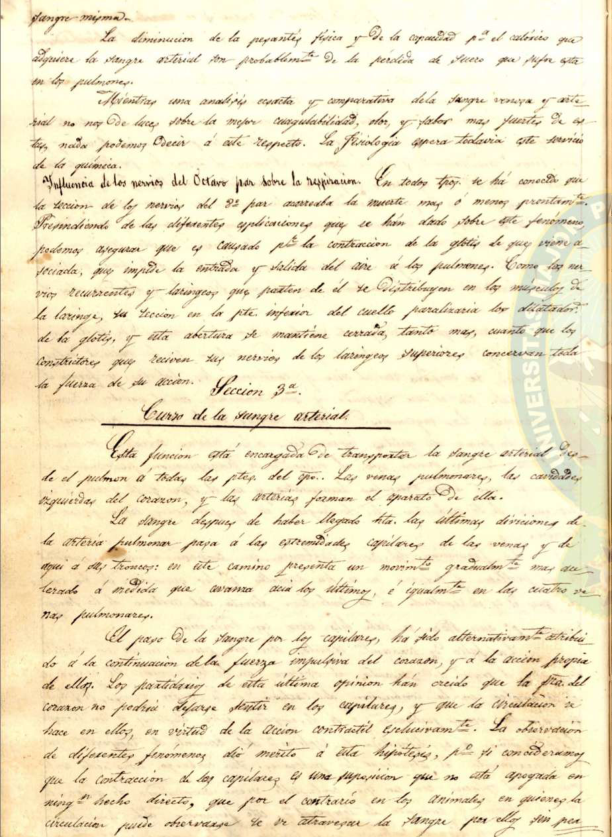 sangre misma.
La diminucion de la pesantés fisica y de la capacidad pª el calórico que
adquiere la sangre arterial son probablemte de la perdida de suero que sufre esta
en los pulmones.
Mientras una analisis ecsacta y comparativa de la sangre venosa y arte-
rial no nos dé luces sobre la mejor cuagulabilidad, olor, y sabor mas fuertes de es-
tas, nada podemos decir á este respecto. La fisiologia espera todavia este servicio
de la química.
Influencia de los nervios del Octavo par sobre la respiracion. En todos tpos. se há conocido que
la seccion de los nervios del 8º par acarreaba la muerte mas ó menos prontamte
Prescindiendo de las diferentes esplicaciones que se hán dado sobre este fenómeno
podemos asegurar que es causado pr la contraccion de la glotis de que viene a-
sociada, que impide la entrada y salida del aire á los pulmones. Como los ner-
vios recurrentes y laringeos que parten de él se distribuyen en los musculos de
la laringe, su seccion en la pte inferior del cuello paralizaria los dilatador.s
de la glotis, y esta abertura se mantiene cerrada, tanto mas, cuanto que los
constrictores que reciven sus nervios de los laringeos superiores conservan toda
la fuerza de su accion.
Seccion 3ª.
Curso de la sangre arterial.
Esta funcion está encargada de transporter la sangre arterial des-
de el pulmon á todas las ptes. del cpo.. Las venas pulmonares, las cavidades
izquierdas del corazon, y las arterias forman el aparato de ella.
La sangre despues de haber llegado hta. las últimas diviciones de
la arteria pulmonar pasa á las estremidades capilares de las venas y de
aqui a sus troncos: en este camino presenta un movimto gradualmte mas ace-
lerado á medida que avanza acia los últimos, é igualmte en las cuatro ve-
nas pulmonares.
El paso de la sangre por los capilares, há sido alternativamte atribui-
do á la continuacion de la fuerza impulsiva del corazon, y á la accion propia
de ellos. Los partidarios de esta última opinion hán creido que la fza. del
corazon no podria dejarse sentir en los capilares, y que la circulacion se
hace en ellos, en virtud de la accion contractil esclusivamte. La observacion
de diferentes fenómenos dió mérito á esta hipótesis, po si consideramos
que la contraccion de los capilares es una suposicion que no está apoyada en
ningn hecho directo, que por el contrario en los animales en quienes la
circulacion puede observarse se ve atravesar la sangre por ellos sin pea
UNIVERSIT